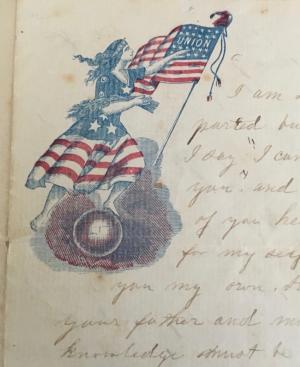 UNION
I am
parted bu
I say "I can
you" and
of you he
for my self
you my own.
your father and
knowledge must be